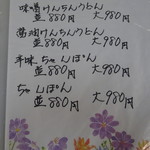 味噌けんちんうどん
並880円 大980円
醤油けんちんうどん
並880円 大980円
辛味ちゃんぽん
並880円 大980円
ちゃんぽん
並880円 大980円